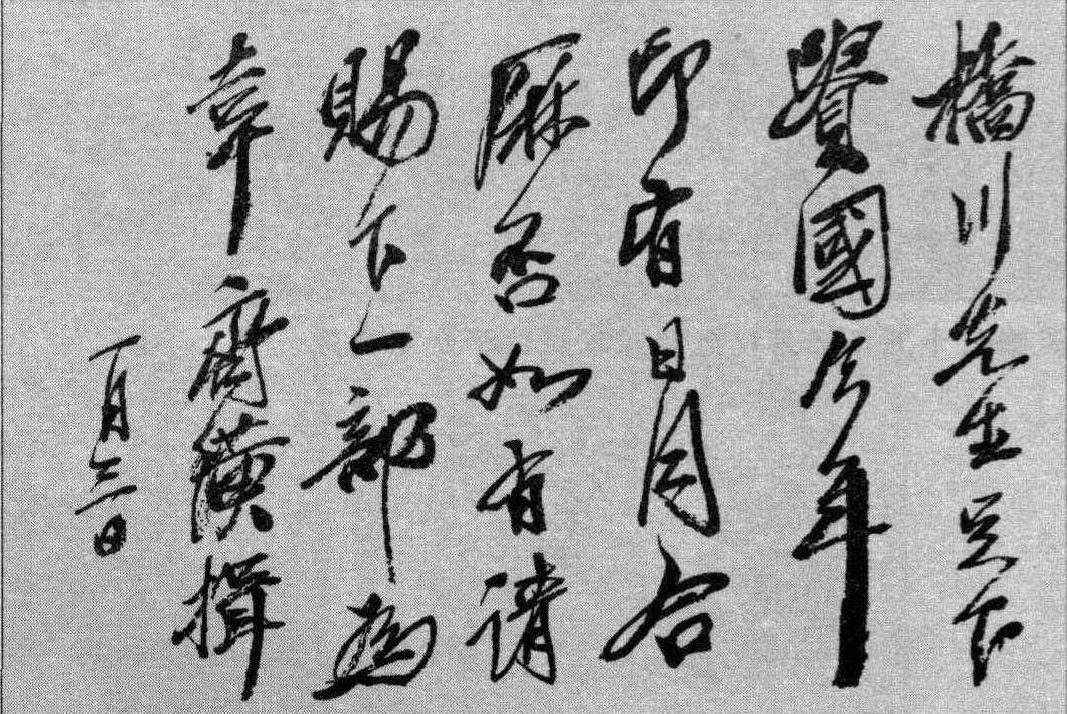 橋川先生足下
貴國今年
印有日月合
曆否如有請
賜下一部為
幸齊璜揖
一月三日